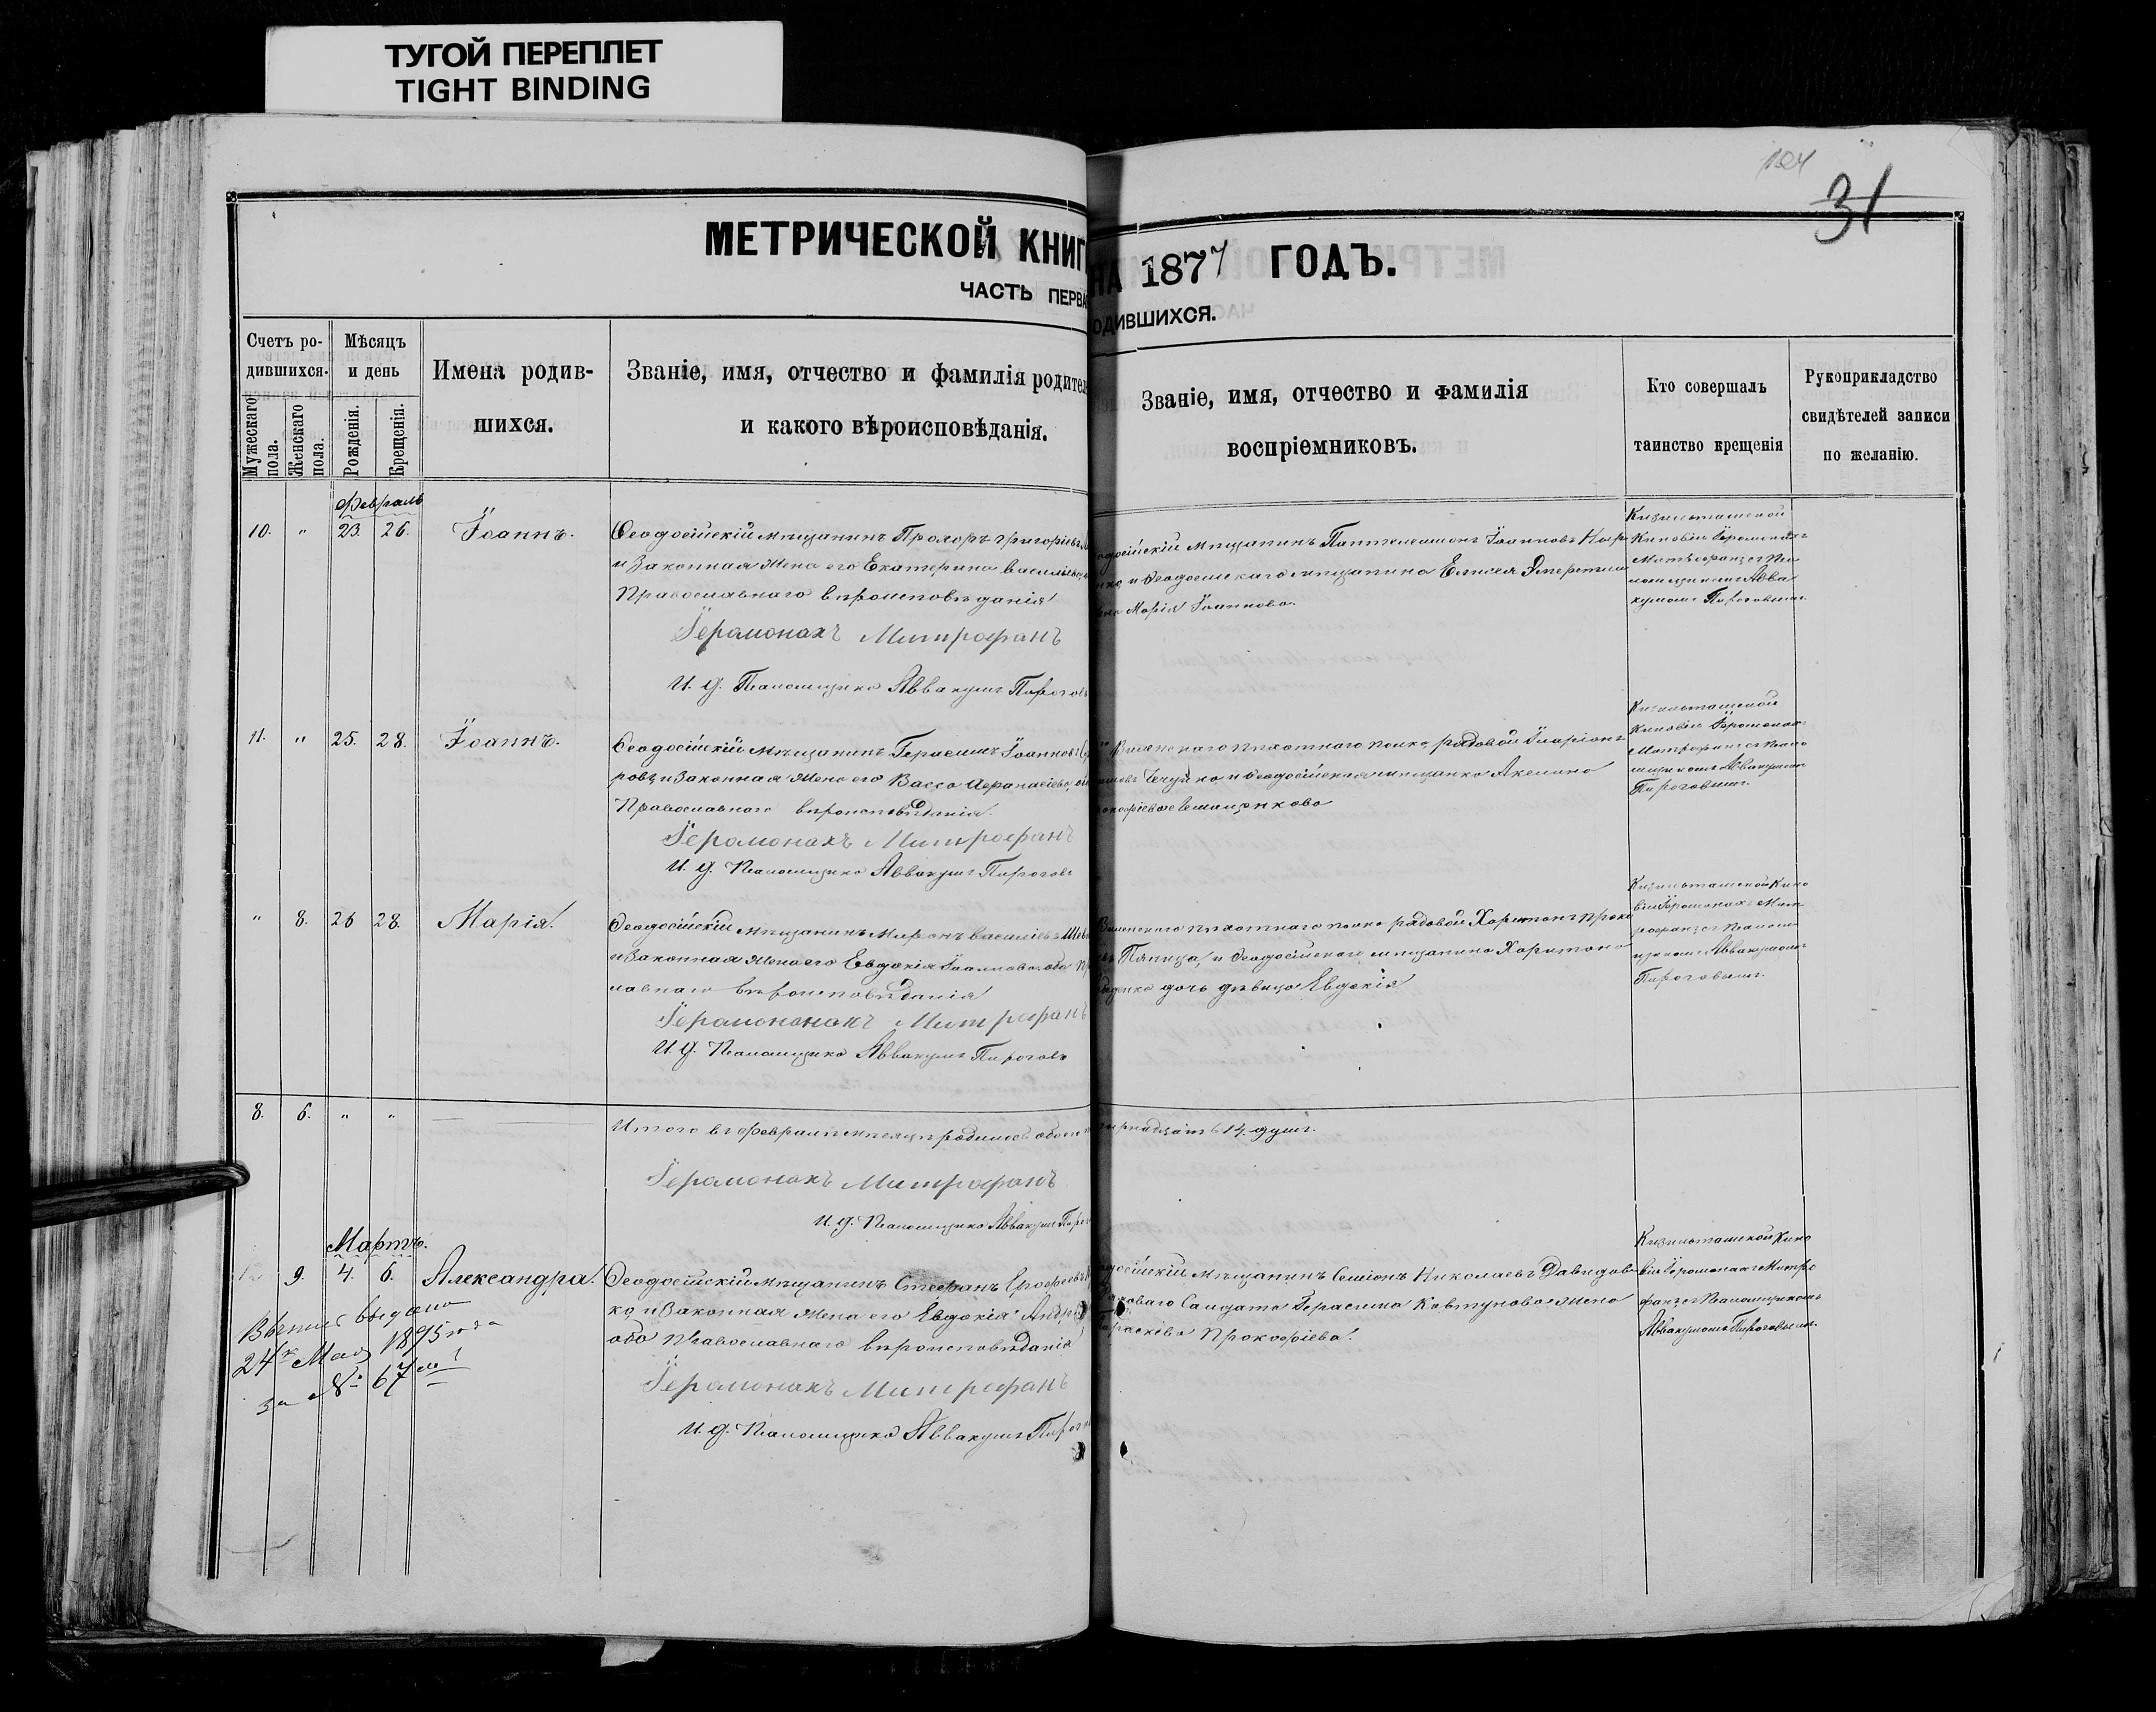 ТУГОЙ ПЕРЕПЛЕТ
TIGHT BINDING
31
МЕТРИЧЕСКОЙ КНИГ
НА 1877 ГОДЪ.
ЧАСТЬ ПЕРВА
ОДИВШИХСЯ.
Счетъ ро-
дившихся.
Мужескаго пола.
Женскаго пола.
Мѣсяцъ
и день
Рожденія.
Крещенія.
Имена родив-
шихся.
Званіе, имя, отчество и фамилія родител
и какого вѣроисповѣданія.
Званіе, имя, отчество и фамилія
воспріемниковъ.
Кто совершалъ
таинство крещенія
Рукоприкладство
свидѣтелей записи
по желанію.
Февраль
10. " 23. 26. Іоаннъ.
Ѳеодосійскій мѣщанинъ Прохоръ Григорьевъ
и законная жена его Екатерина Васильева
Православнаго вѣроисповѣданія
Іеромонахъ Митрофанъ
И. д. Псаломщика Аввакумъ Пирогов
одосійскій мѣщанинъ Пантелеимонъ Іоанновъ
и Ѳеодосійскаго мѣщанина Елисея
Марія Іоаннова.
Кизильташской
Киновіи Іеромонахъ
Митрофанъ съ Пса
ломщикомъ Авва
кумомъ Пироговымъ.
11. " 25. 28. Іоаннъ.
Ѳеодосійскій мѣщанинъ Герасимъ Іоанновъ
ровъ и законная жена его Васса Аѳанасіева
Православнаго вѣроисповѣданія.
Іеромонахъ Митрофанъ
И. д. Псаломщика Аввакумъ Пироговъ
Виленскаго пѣхотнаго полка рядовой Иларіонъ
и Ѳеодосійская мѣщанка Акелина
Кизильташской
Киновіи Іеромонах
Митрофанъ съ Псало
мщикомъ Аввакумом
Пироговымъ.
" 8. 26 28. Марія.
Ѳеодосійскій мѣщанинъ Миронъ Васильевъ
и законная жена его Евдокія Іоаннова оба Пр
лавнаго вѣроисповѣданія
Іеромонахъ Митрофанъ
И. д. Псаломщика Аввакумъ Пироговъ
Виленскаго пѣхотнаго полка рядовой Харитонъ
и Ѳеодосійскаго мѣщанина Харитона
дочь дѣвица Евдокія
Кизильташской Кино
віи Іеромонахъ Мит
рофанъ съ Псалом
щикомъ Аввакумомъ
Пироговымъ.
8. 6. " "
Итого въ Февралѣ мѣсяцѣ родилось обоего
14. душъ.
Іеромонахъ Митрофанъ
И. д. Псаломщика Аввакумъ Пирог
Мартъ.
9. 4. 6. Александра.
Ѳеодосійскій мѣщанинъ Стефанъ Ероѳеевъ
ко и законная жена его Евдокія
оба Православнаго вѣроисповѣданія
Іеромонахъ Митрофанъ
И. д. Псаломщика Аввакумъ Пирог
одосійскій мѣщанинъ Семіонъ Николаевъ Давидов
Солдата Герасима Ковтунова жена
Параскева Прокофіева.
Кизильташской Кино
віи Іеромонахъ Митро
фанъ съ Псаломщикомъ
Аввакумомъ Пироговымъ.
выдана
24 Мая 1895 года
за № 67